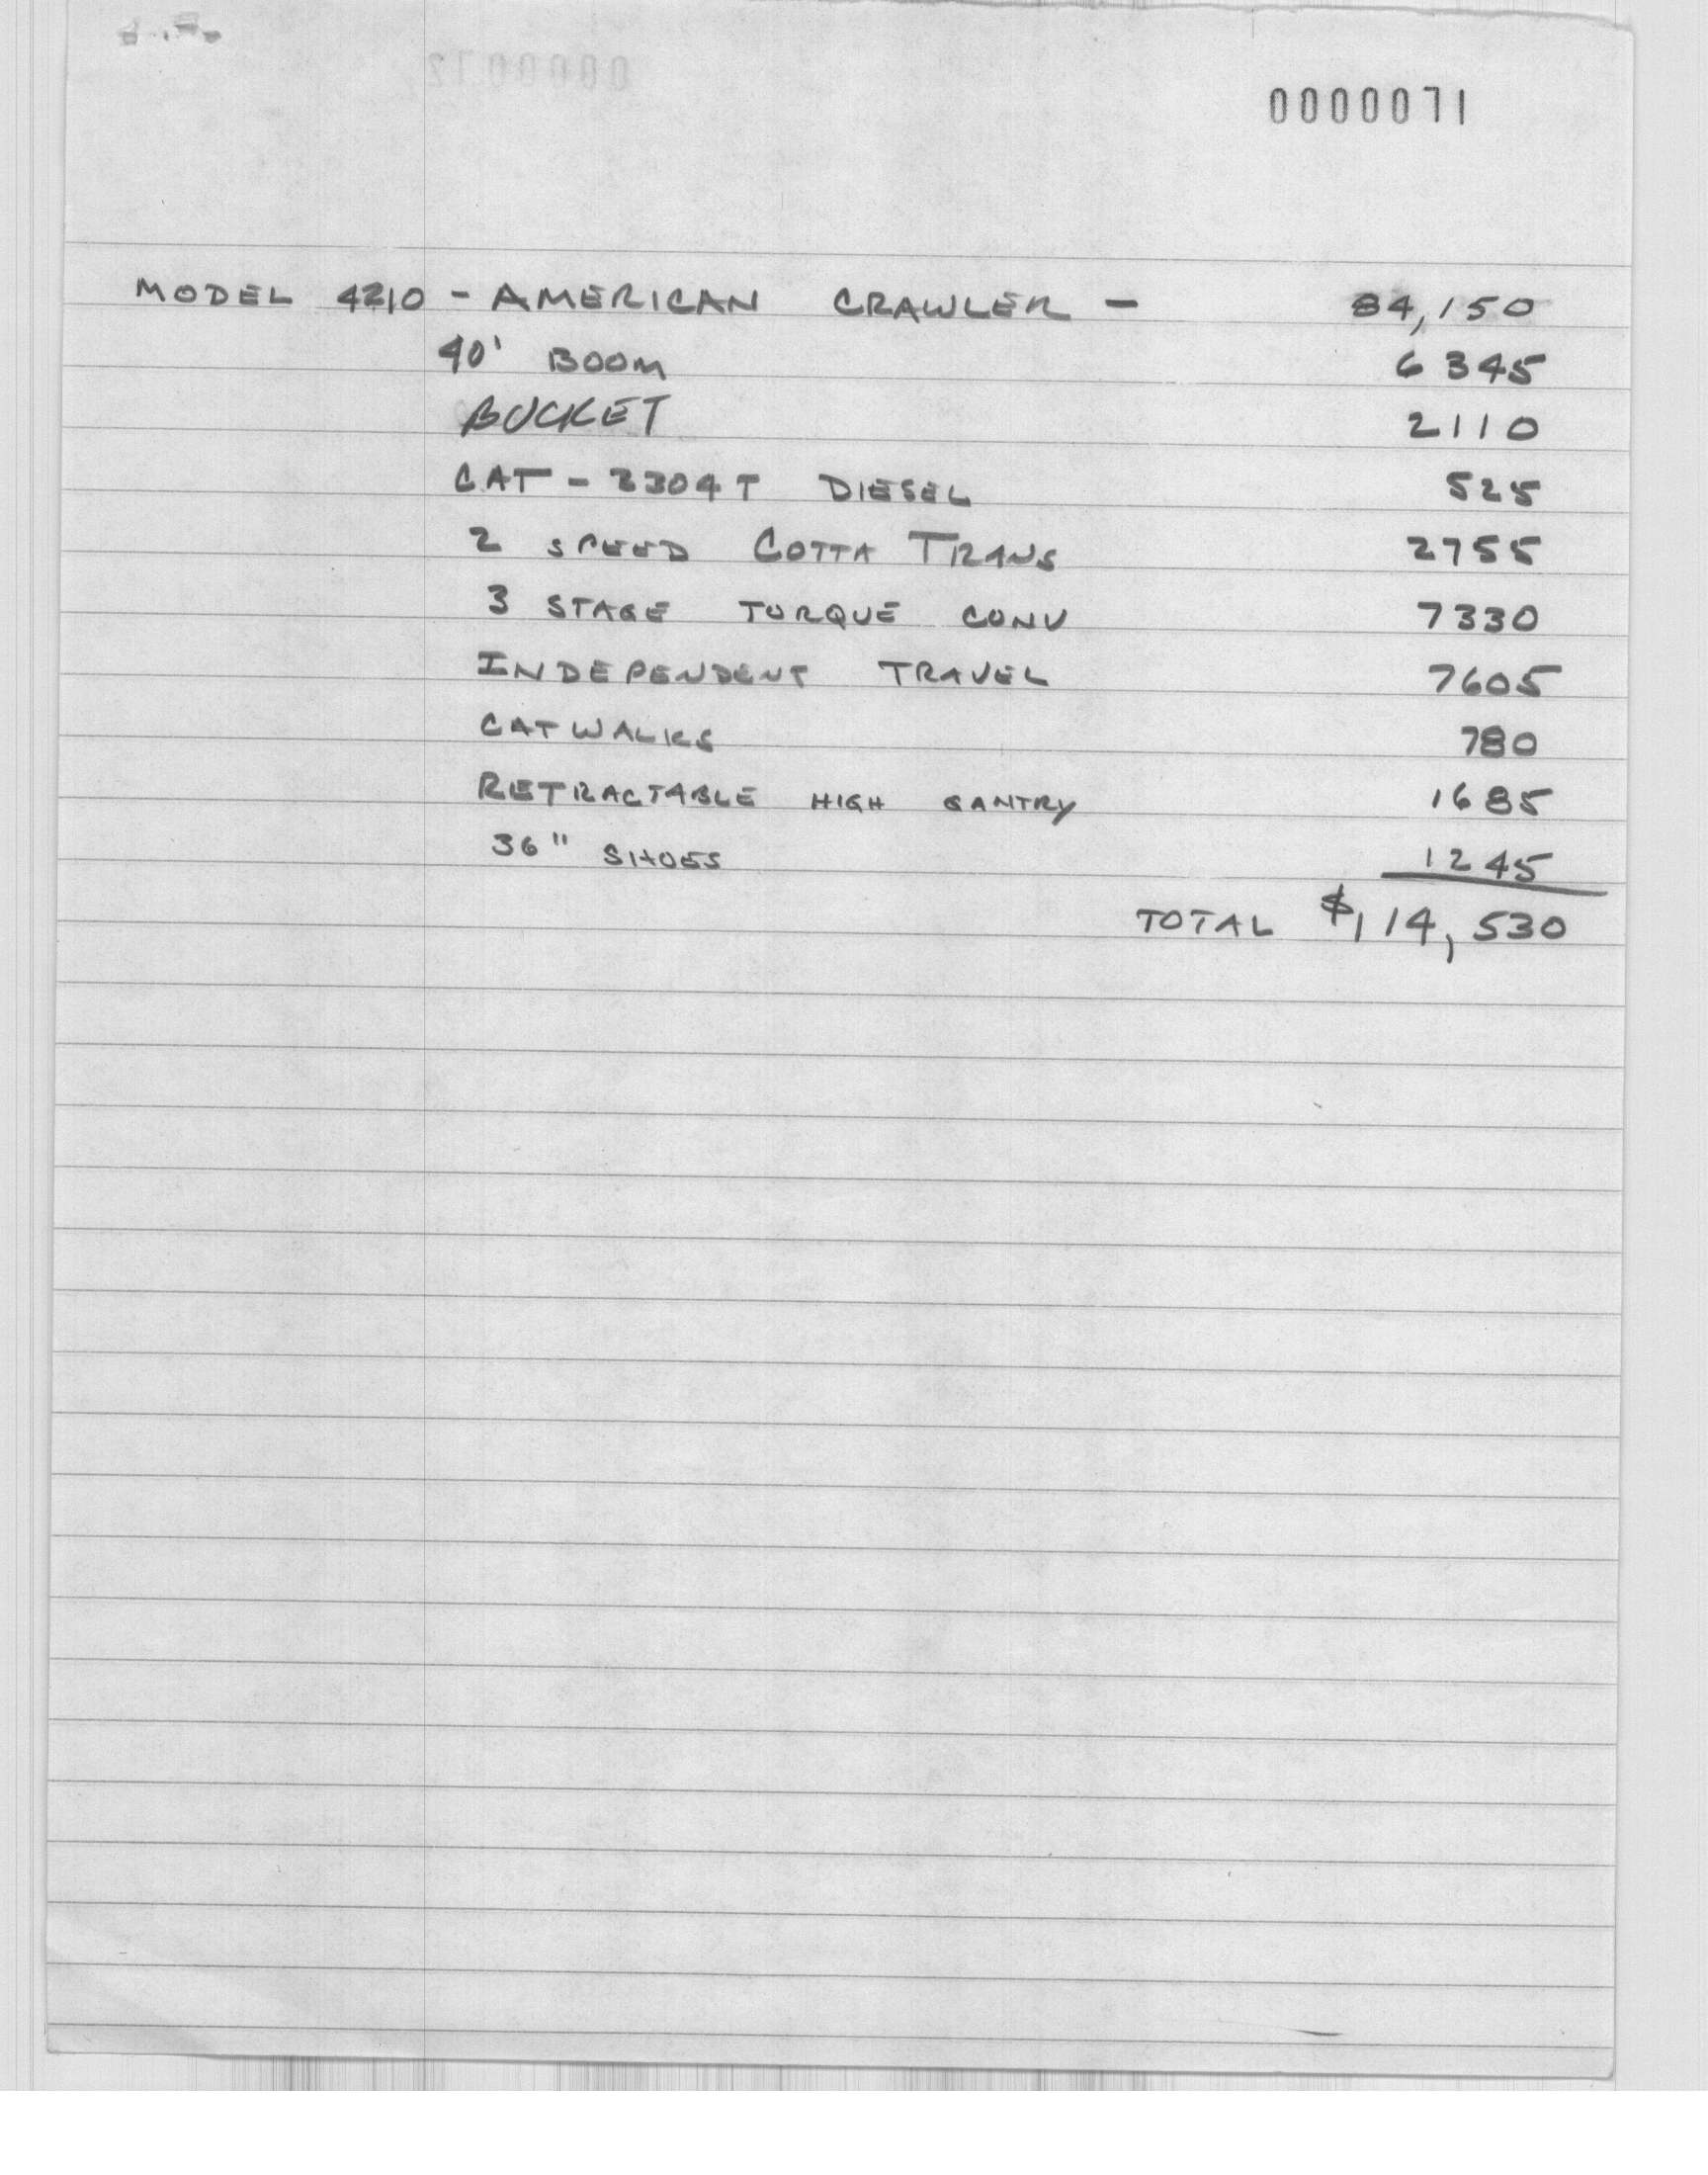 0000071
MODEL 4210 - AMERICAN CRAWLER - 84,150
40' BOOM 6345
BUCKET 2110
CAT - 3304T DIESEL 525
2 SPEED COTTA TRANS 2755
3 STAGE TORQUE CONV 7330
INDEPENDENT TRAVEL 7605
CATWALKS 780
RETRACTABLE HIGH GANTRY 1685
36" SHOES 1245
TOTAL $114,530